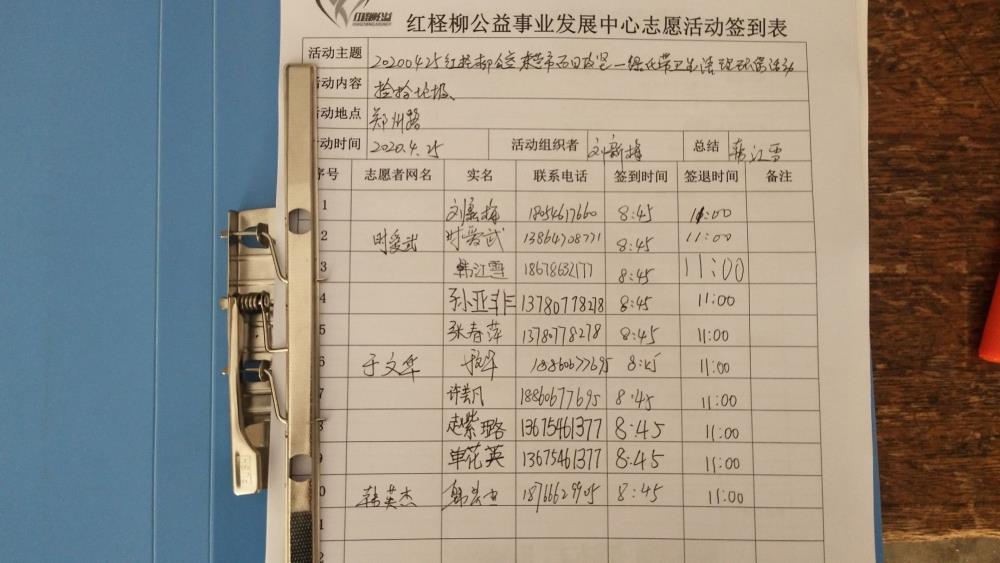 红柽柳公益
红柽柳公益事业发展中心志愿活动签到表
活动主题 20200425红柽柳公益
活动内容 捡拾垃圾
活动地点 郑州路
活动时间 2020.4.25 活动组织者 刘新梅 总结 韩江雪
序号 志愿者网名 实名 联系电话 签到时间 签退时间 备注
1 18054617660 8:45 11:00
2 时爱武 时爱武 13864708771 8:45 11:00
3 韩江雪 18678632177 8:45 11:00
4 孙亚菲 13780778278 8:45 11:00
5 张春萍 13780778278 8:45 11:00
6 于文华 8:45 11:00
7 18860677695 8:45 11:00
8 赵紫璐 13675461377 8:45 11:00
9 单花英 13675461377 8:45 11:00
10 韩英杰 8:45 11:00
1
2